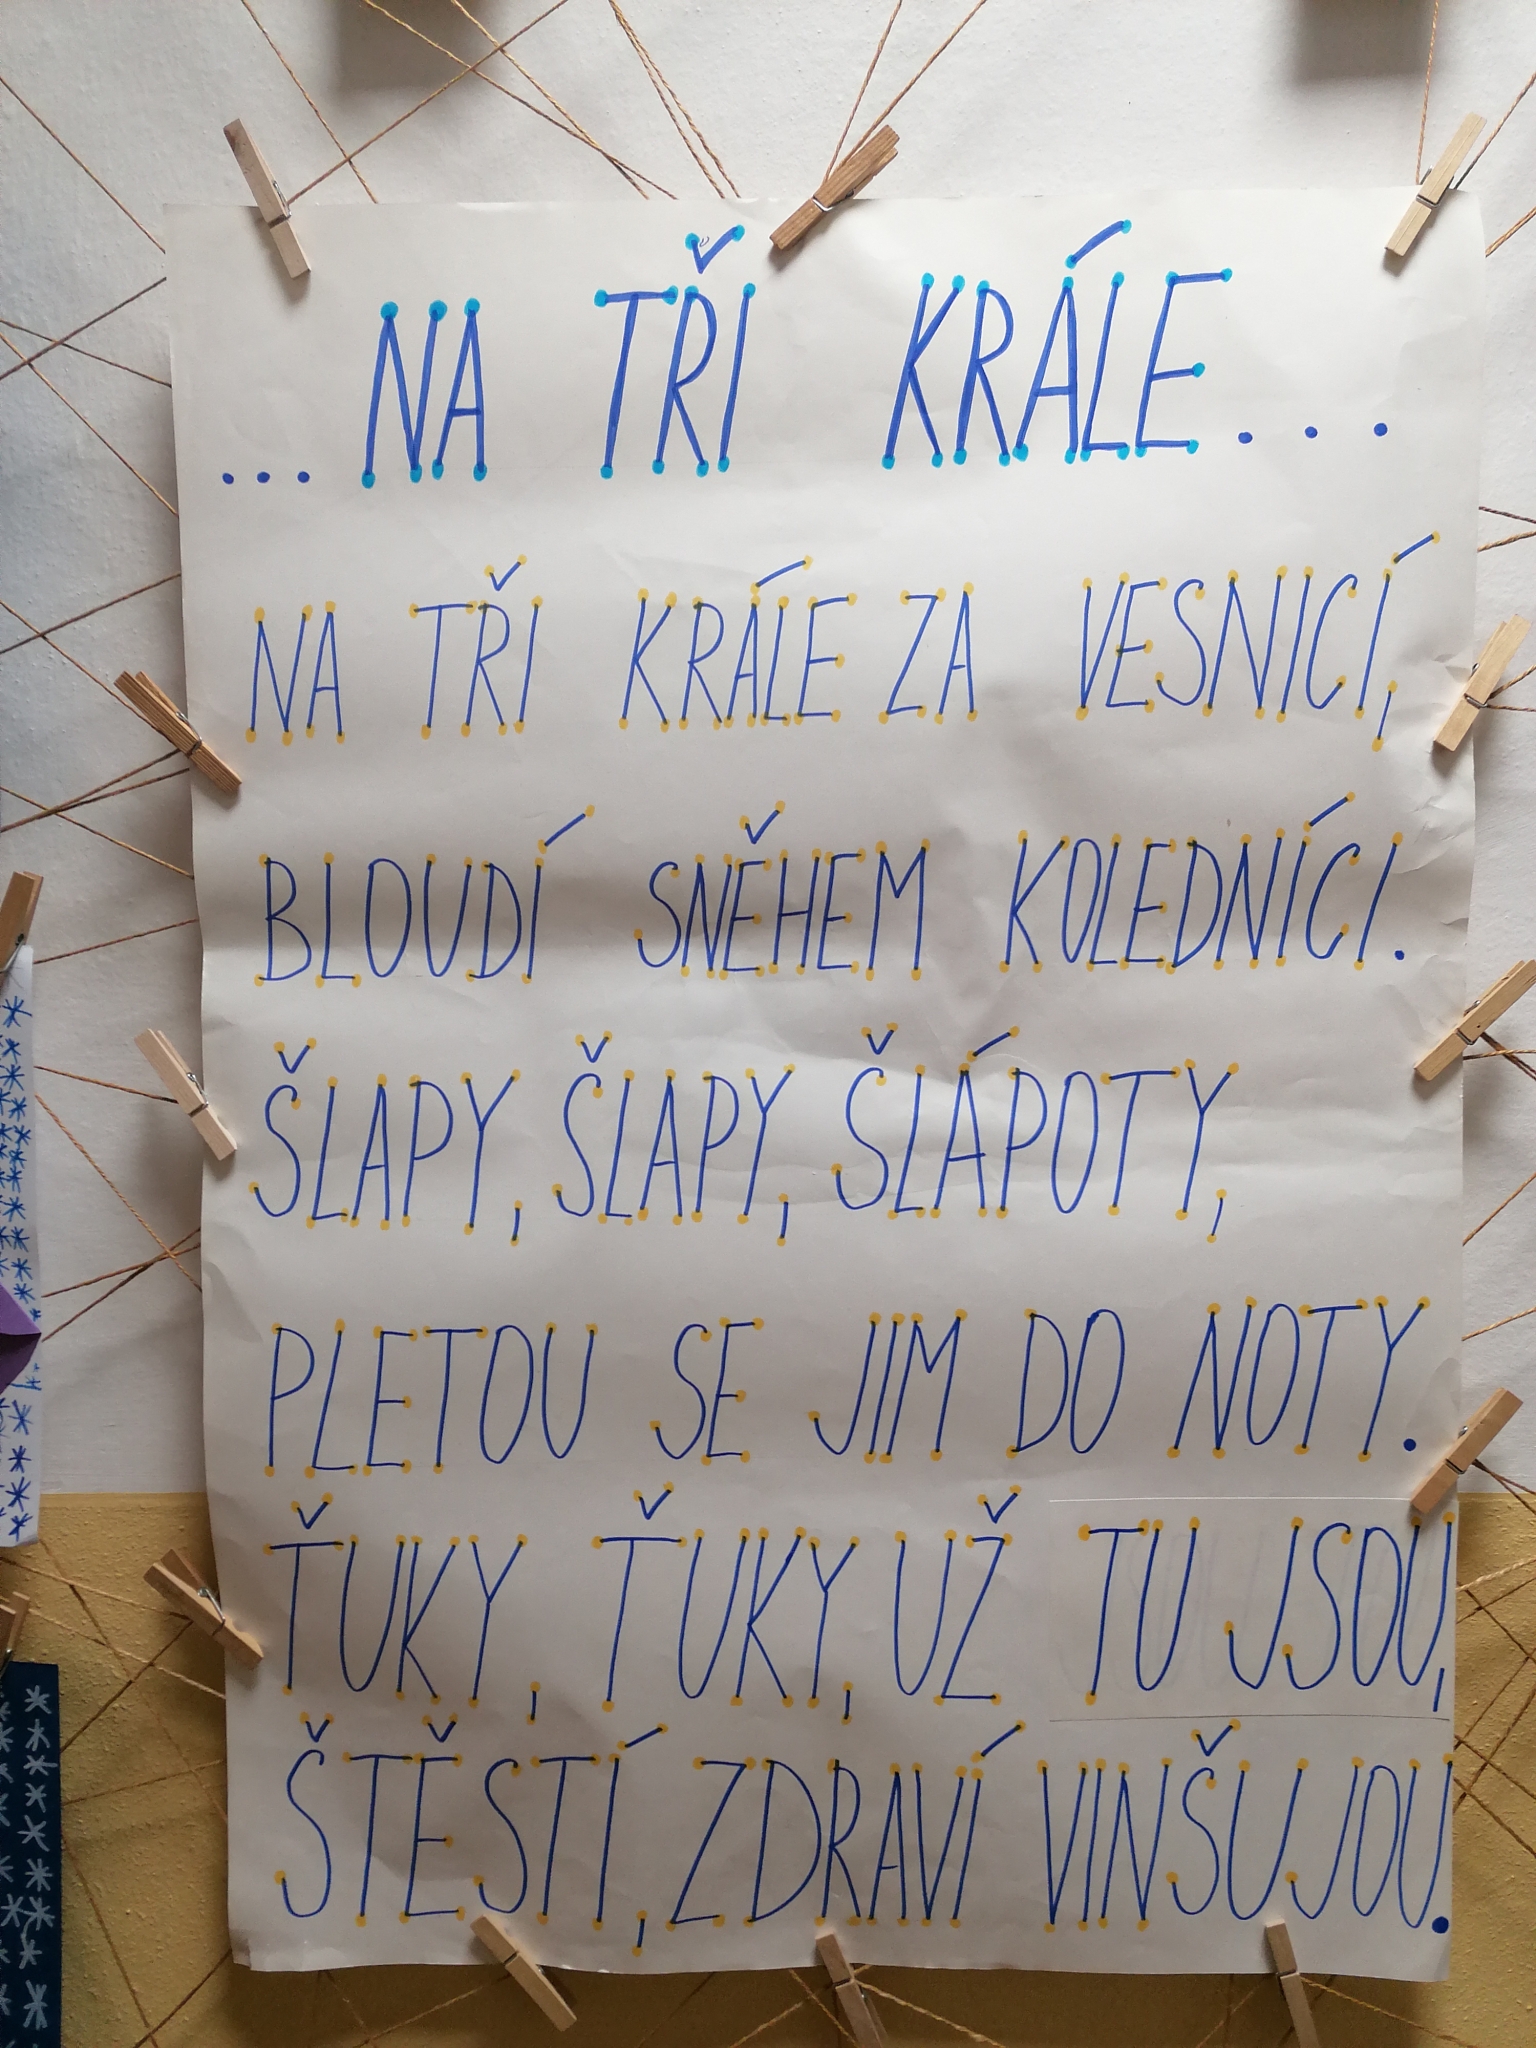 ... NA TŘI KRÁLE...
NA TŘI KRÁLE ZA VESNICÍ,
BLOUDÍ SNĚHEM KOLEDNÍCI.
ŠLAPY, ŠLAPY, ŠLÁPOTY,
PLETOU SE JIM DO NOTY.
ŤUKY, ŤUKY, UŽ TU JSOU,
ŠTĚSTÍ, ZDRAVÍ VINŠUJOU.